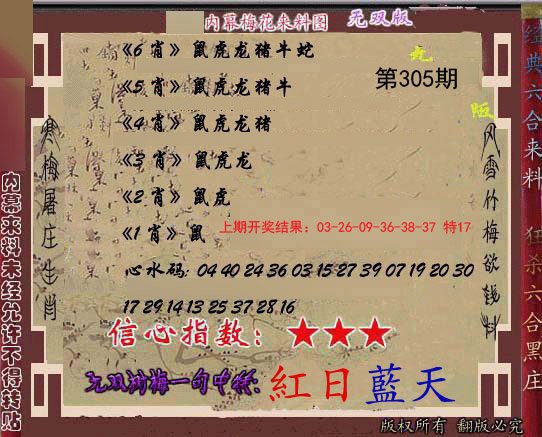 内幕梅花来料图 无双版
《6 肖》 鼠虎龙猪牛蛇
第305期
《5 肖》 鼠虎龙猪牛
《4 肖》 鼠虎龙猪
《3 肖》 鼠虎龙
《2 肖》 鼠虎
《1 肖》 鼠
上期开奖结果：03-26-09-36-38-37 特17
心水码: 04 40 24 36 03 15 27 39 07 19 20 30
17 29 14 13 25 37 28 16
信心指数：★★★
紅日藍天
版权所有 翻版必究
寒梅屠庄生肖
风雪竹梅欲钱料
内幕来料未经允许不得转贴
经典六合来料 狂杀六合黑庄